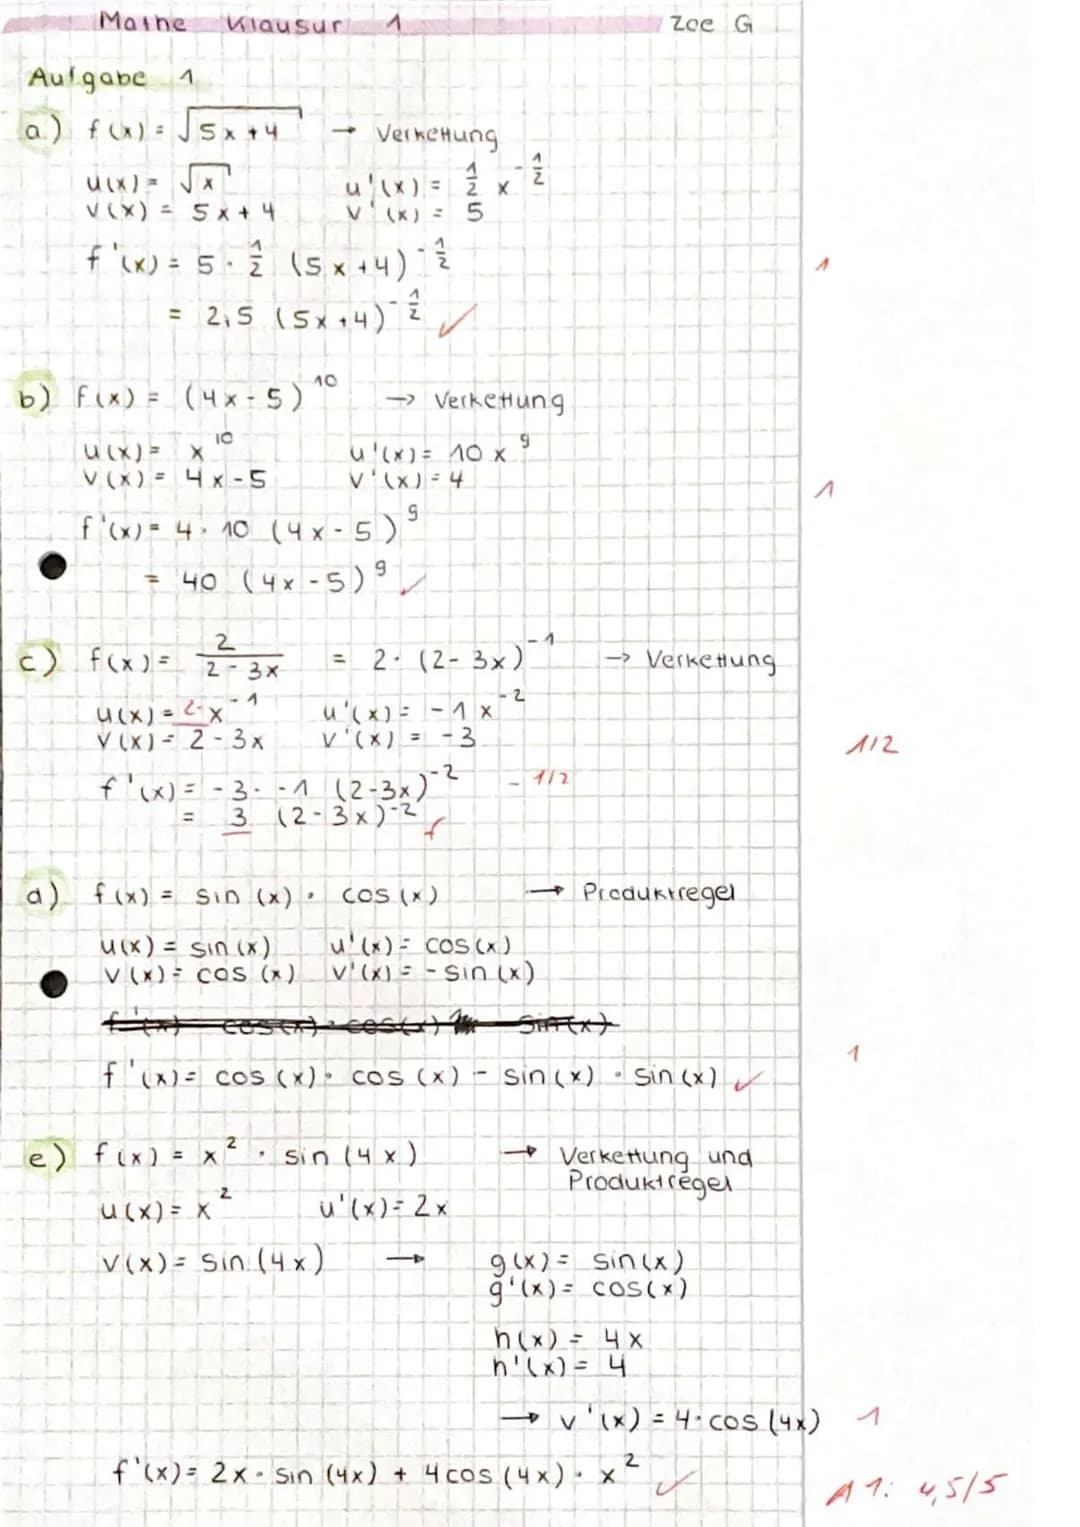 Mathe Klausur 1 Zoe G
Aufgabe 1
a) f(x) = √(5x+4) → Verkettung
u(x) = √x u'(x) = 1/2 x^(-1/2)
v(x) = 5x+4 v'(x) = 5
f'(x) = 5 · 1/2 (5x+4)^(-1/2) 1
= 2,5 (5x+4)^(-1/2) ✓
b) f(x) = (4x-5)^10 → Verkettung
u(x) = x^10 u'(x) = 10x^9
v(x) = 4x-5 v'(x) = 4 1
f'(x) = 4 · 10 (4x-5)^9
= 40 (4x-5)^9 ✓
c) f(x) = 2/(2-3x) = 2 · (2-3x)^-1 → Verkettung
u(x) = 2·x^-1 u'(x) = -1x^-2
v(x) = 2-3x v'(x) = -3 1/2
f'(x) = -3 · -1 (2-3x)^-2 - 1/2
= 3 (2-3x)^-2 f
d) f(x) = sin(x) · cos(x) → Produktregel
u(x) = sin(x) u'(x) = cos(x)
v(x) = cos(x) v'(x) = -sin(x)
f'(x) = cos(x) · cos(x) - sin(x) · sin(x) ✓ 1
e) f(x) = x² · sin(4x) → Verkettung und
Produktregel
u(x) = x² u'(x) = 2x
v(x) = sin(4x) → g(x) = sin(x)
g'(x) = cos(x)
h(x) = 4x
h'(x) = 4
→ v'(x) = 4·cos(4x) 1
f'(x) = 2x · sin(4x) + 4cos(4x) · x² ✓
A1: 4,5/5